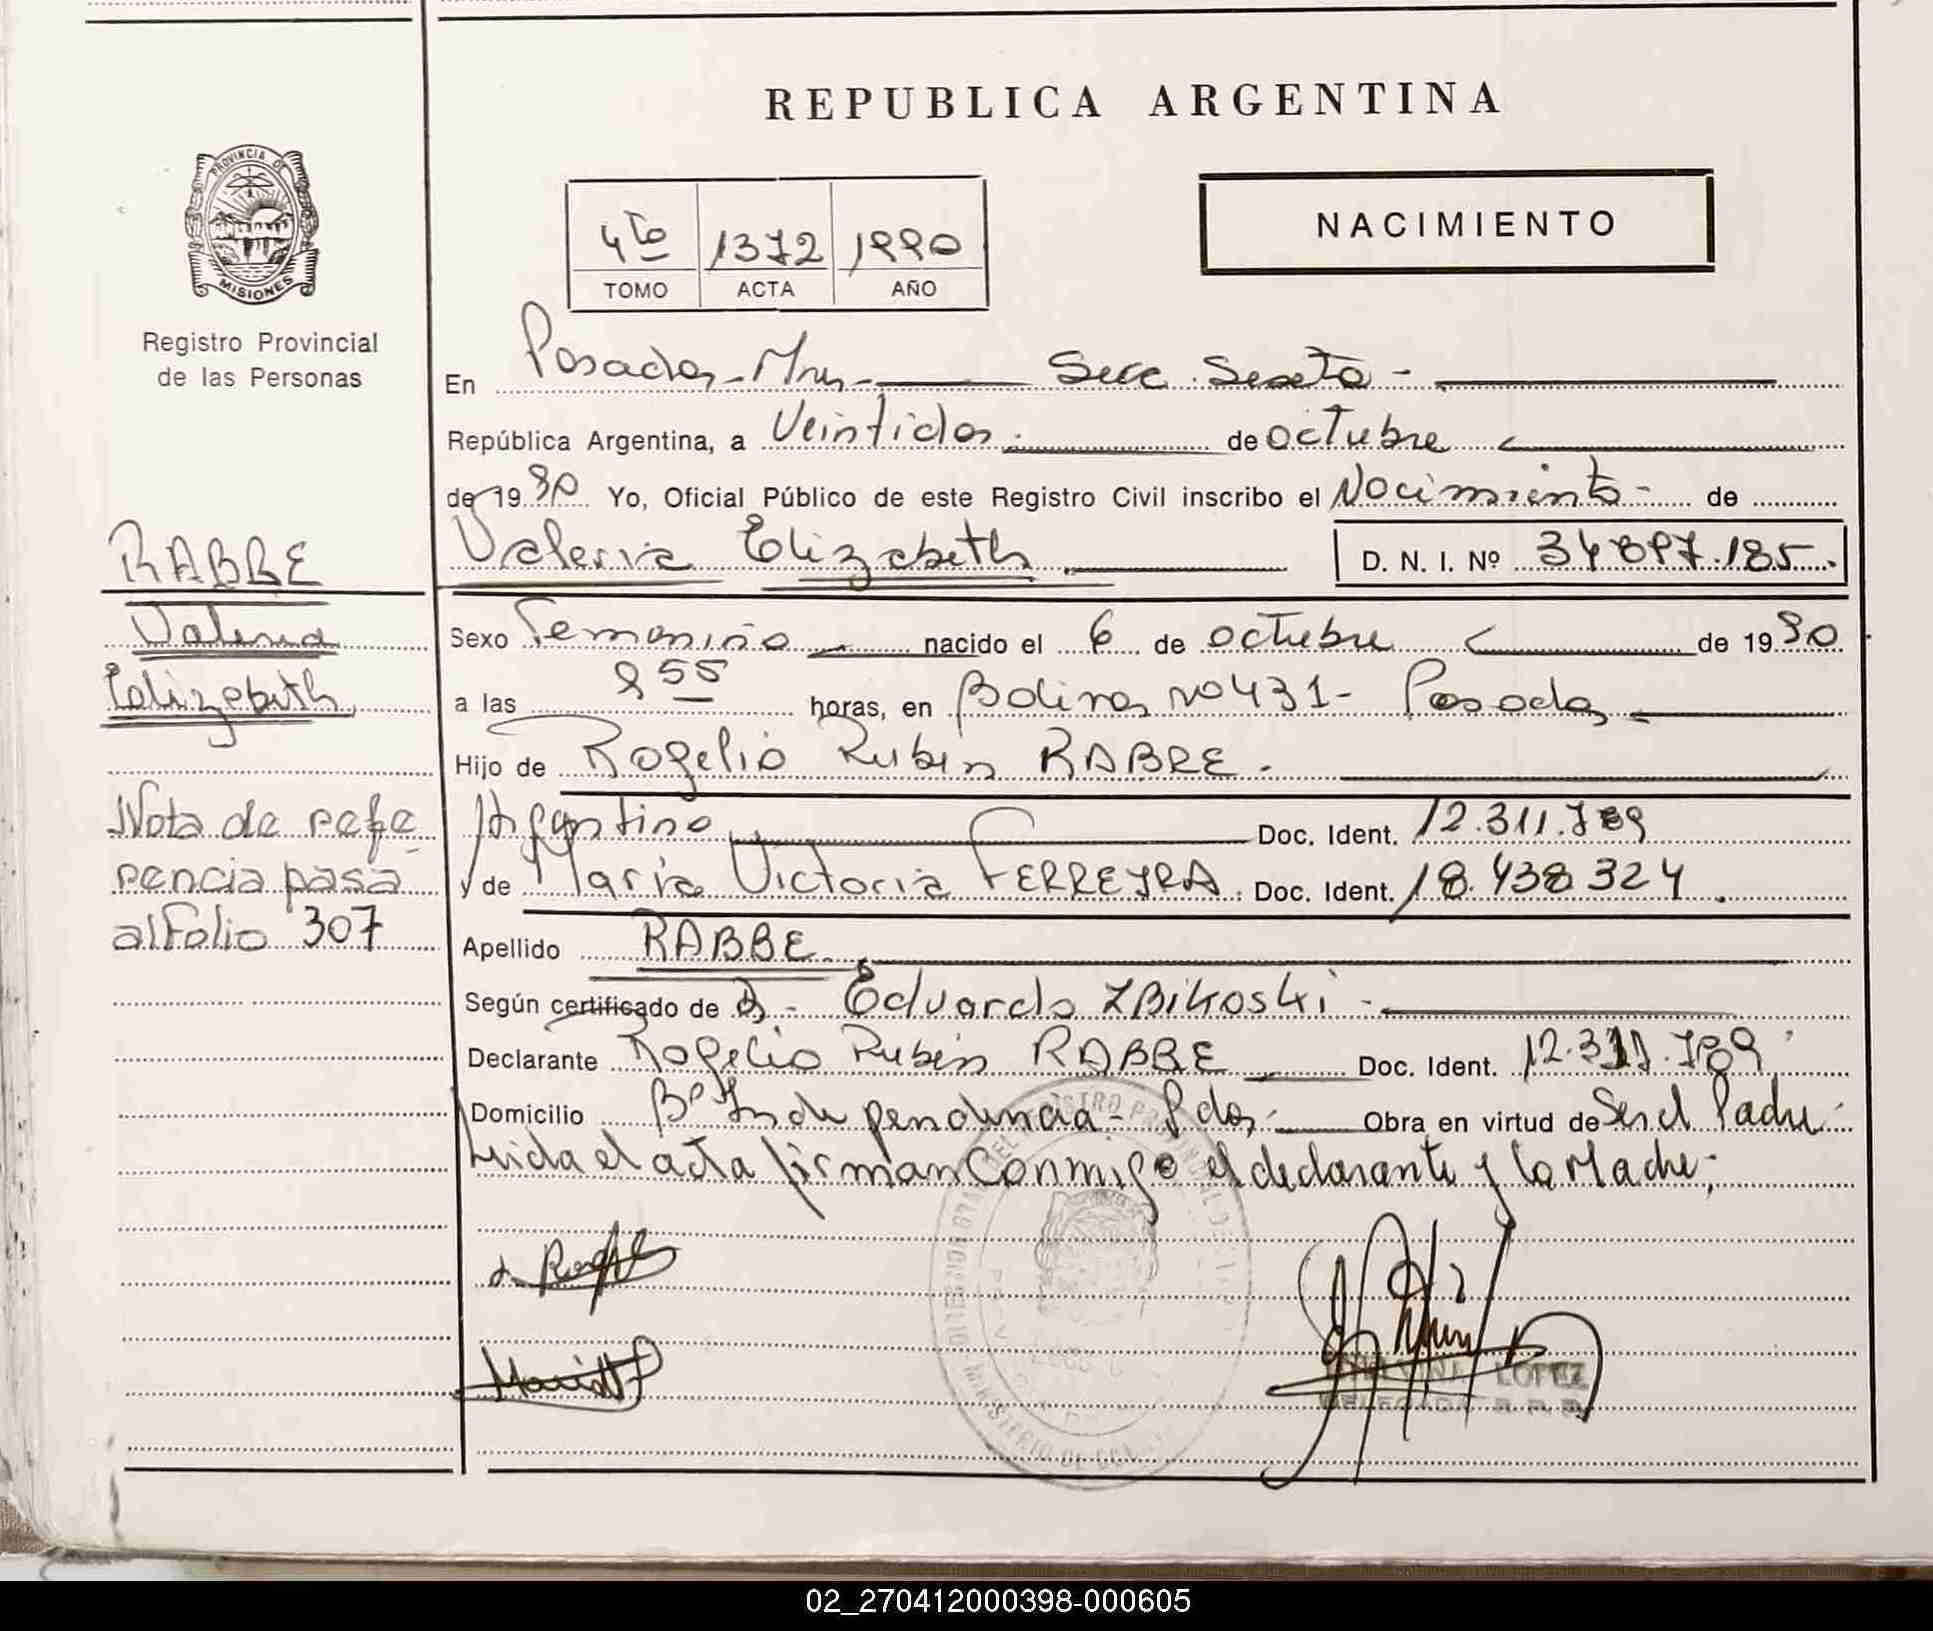 REPUBLICA ARGENTINA
NACIMIENTO
4to 1372 1990
TOMO ACTA AÑO
PROVINCIA DE
MISIONES
Registro Provincial
de las Personas
En Posadas - Mnes - Secc. Sexta -
República Argentina, a Veintidos de octubre
de 1990 Yo, Oficial Público de este Registro Civil inscribo el Nacimiento - de
Valeria Elizabeth D. N. I. Nº 34.897.185.
RABBE
Valeria
Elizabeth
Sexo Femenino nacido el 6 de octubre de 1990
a las 8 55 horas, en Bolivar Nº 431 - Posadas
Hijo de Rogelio Ruben RABBE.
Argentino Doc. Ident. 12.311.789
y de Maria Victoria FERREYRA. Doc. Ident. 18.438.324.
Nota de refe
rencia pasa
al folio 307
Apellido RABBE.
Según certificado de D - Eduardo ZBIKOSKI -
Declarante Rogelio Ruben RABBE Doc. Ident. 12.311.789
Domicilio Bº Independencia - Pdas. Obra en virtud de Ser el Padre.
Leida el acta firman Conmigo el declarante y la Madre;
LOPEZ
DELEGADA R. P. P.
02_270412000398-000605